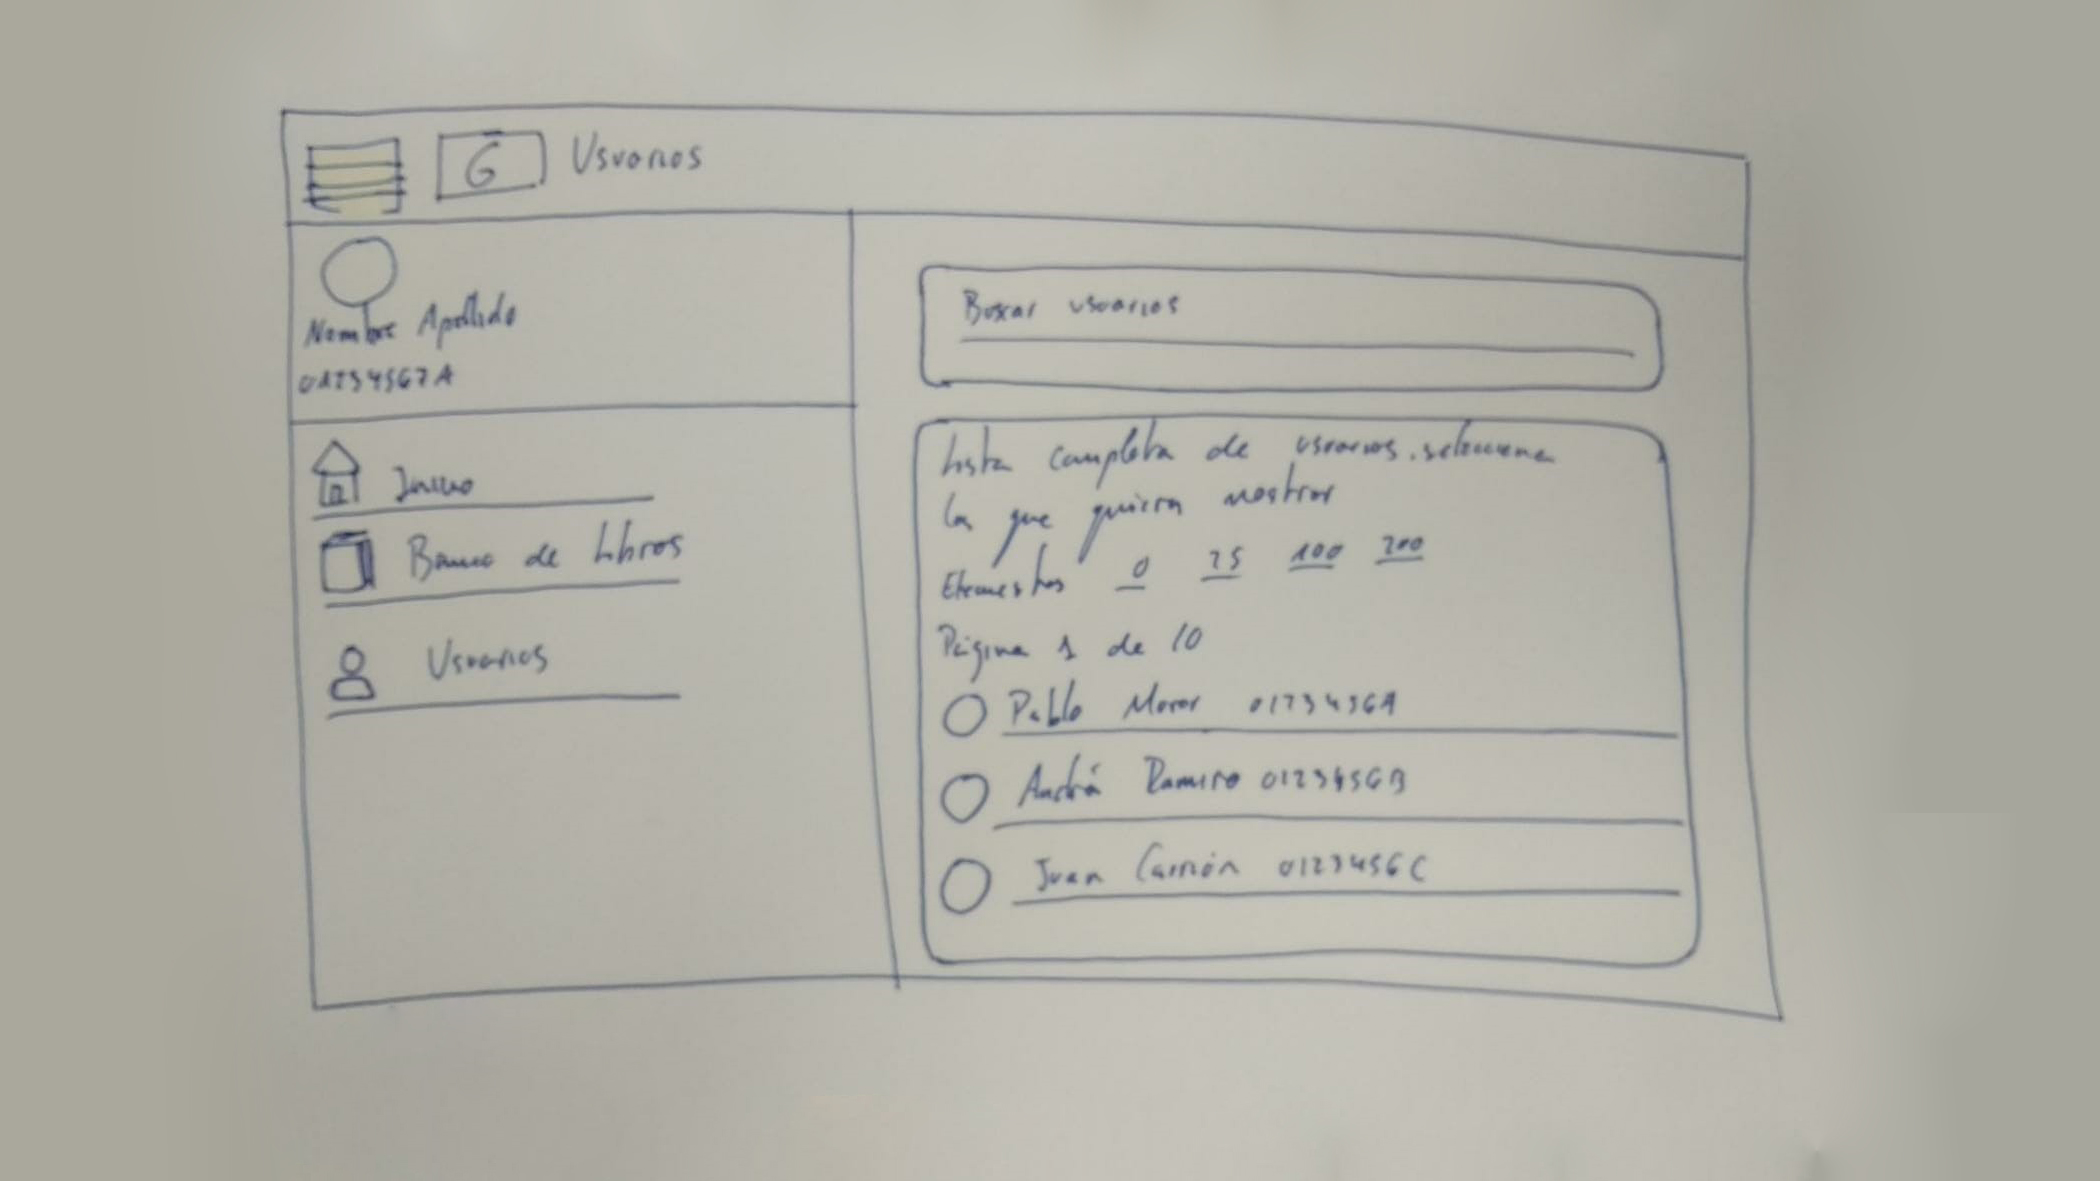 G Usuarios
Nombre Apellido
01234567A
Inicio
Banco de Libros
Usuarios
Buscar usuarios
Lista completa de usuarios, seleccione
los que quiera mostrar
Elementos 0 25 100 200
Página 1 de 10
Pablo 0123456A
Ramiro 0123456B
Juan Carrión 0123456C